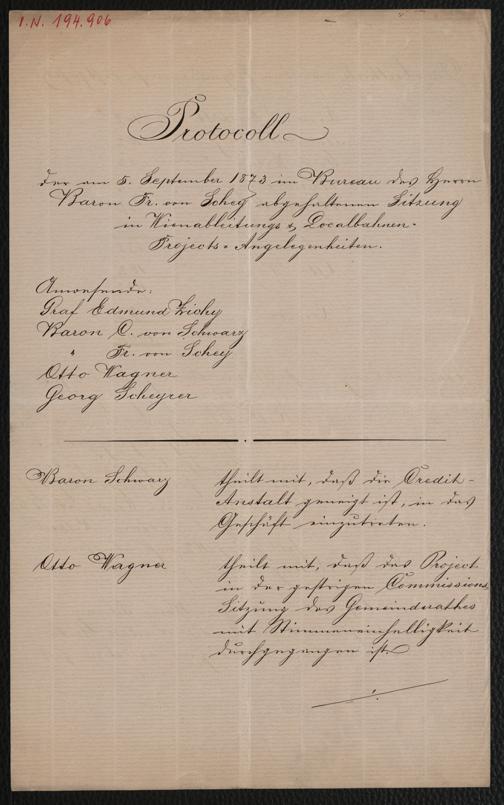 I.N. 194.906
Protocoll
der am 5. September 1873 im Bureau des Herrn
Baron Fr. von Schey abgehaltenen Sitzung
in Wienableitungs & Localbahnen-
Projects-Angelegenheiten.
Anwesende:
Graf Edmund Zichy
Baron C. von Schwarz
" Fr. von Schey
Otto Wagner
Georg Scheyrer
Baron Schwarz theilt mit, daß die Credit-
Anstalt geneigt ist, in das
Geschäft einzutreten.
Otto Wagner theilt mit, daß das Project
in der gestrigen Commissions
Sitzung des Gemeinderathes
mit Stimmeneinhelligkeit
durchgegangen ist